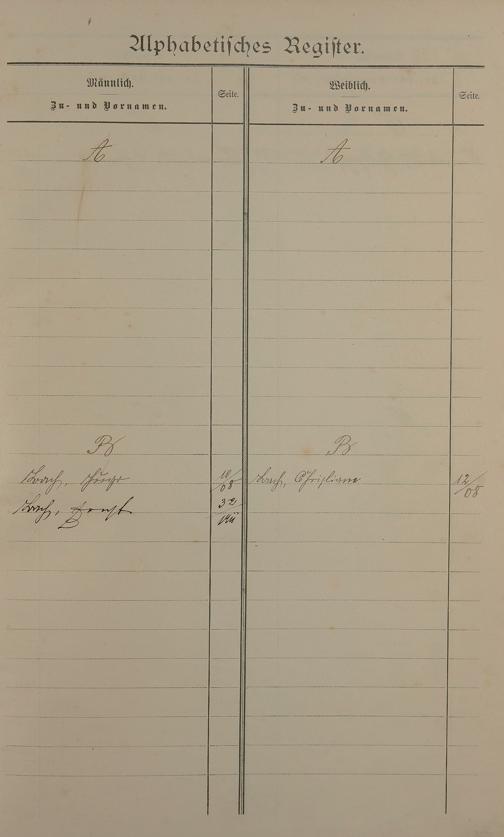 Alphabetisches Register.
Männlich.
Zu- und Vornamen.
Seite.
Weiblich.
Zu- und Vornamen.
Seite.
A
A
B
B
Bach,
10/08
Bach, Christiane
12/08
Bach, Ernst
32